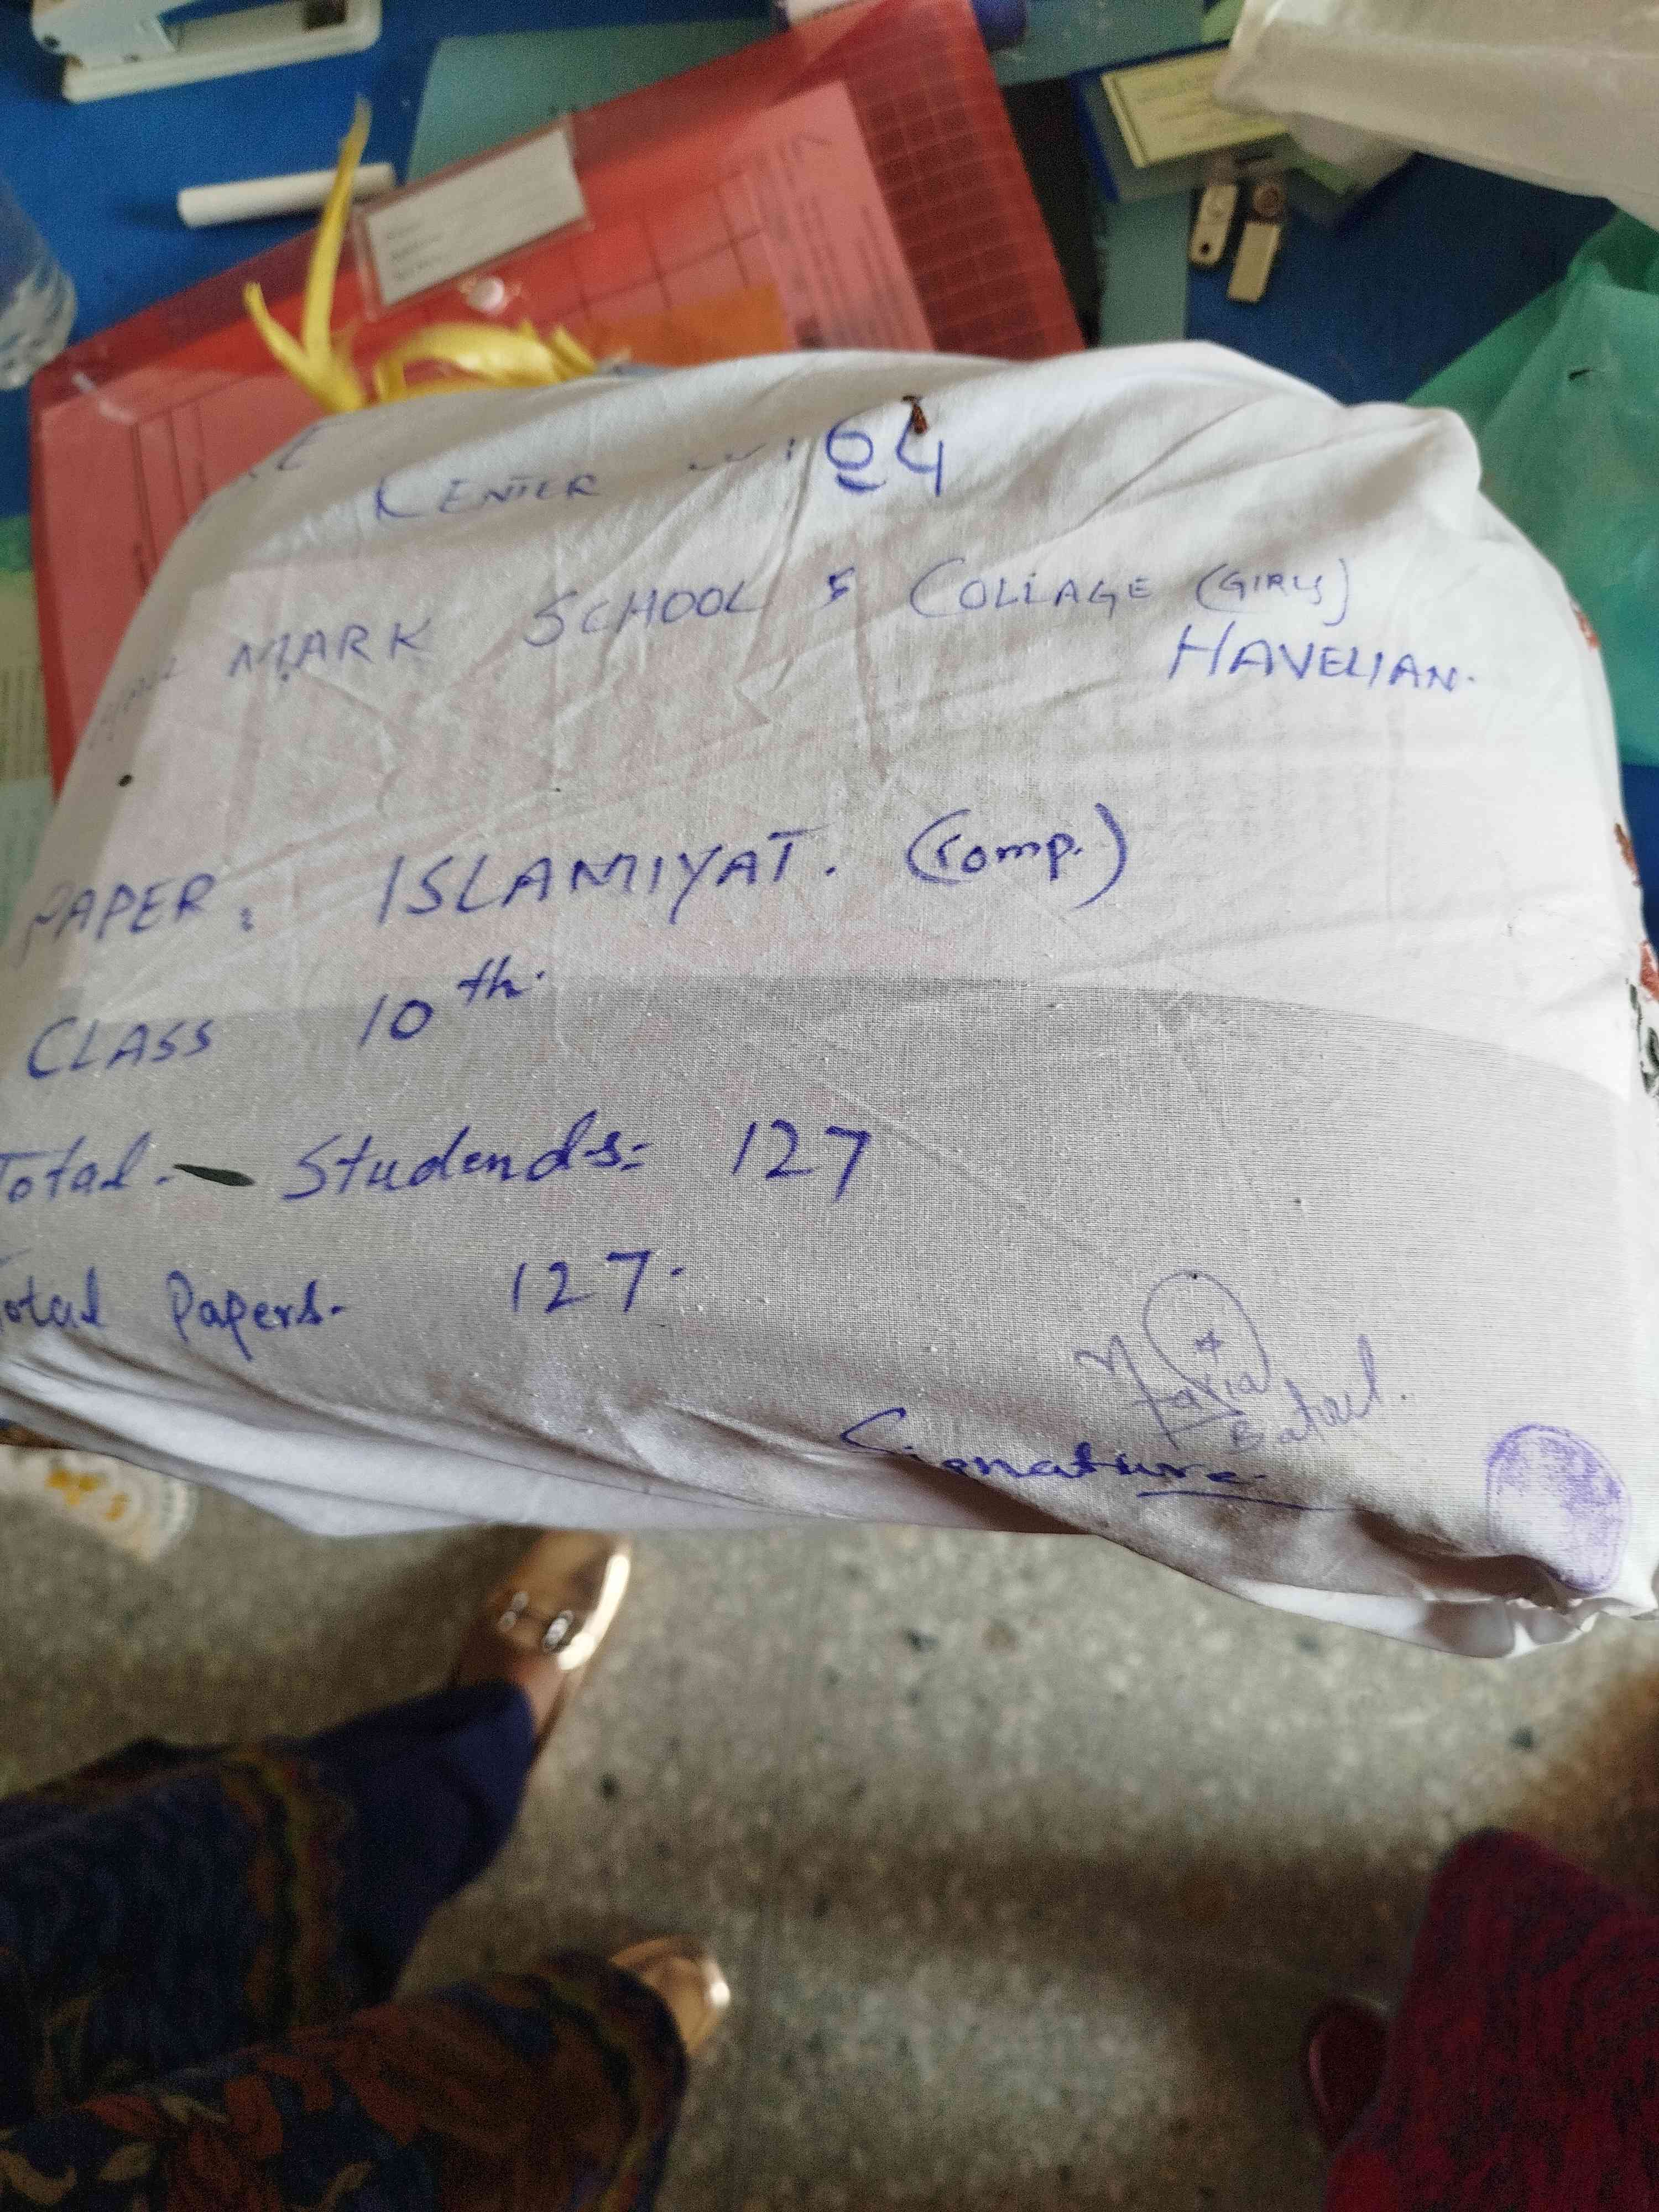 CENTER
MARK SCHOOL & COLLAGE (GIRLS)
HAVELIAN.
PAPER: ISLAMIYAT. (Comp.)
CLASS 10th.
Total - Studends: 127
Total Papers. 127.
Signature